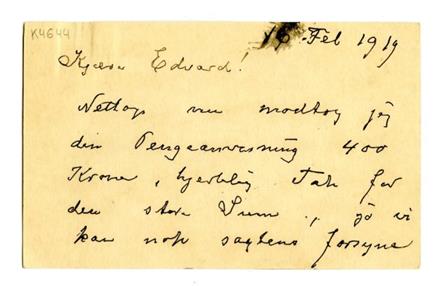 K4644
16 Feb 1919
Kjære Edvard!
Nettop nu modtog jeg
din Pengeanvisning 400
Krone, hjertelig Tak for
den store Sum., jo vi
kan nok sagtens forsyne